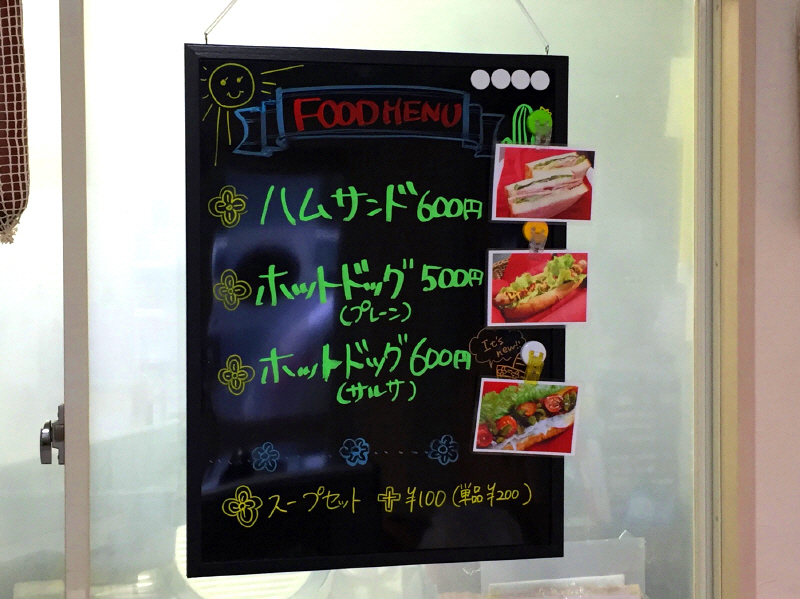 FOOD MENU
ハムサンド 600円
ホットドッグ 500円
(プレーン)
It's new!!
ホットドッグ 600円
(サルサ)
スープセット +¥100 (単品¥200)